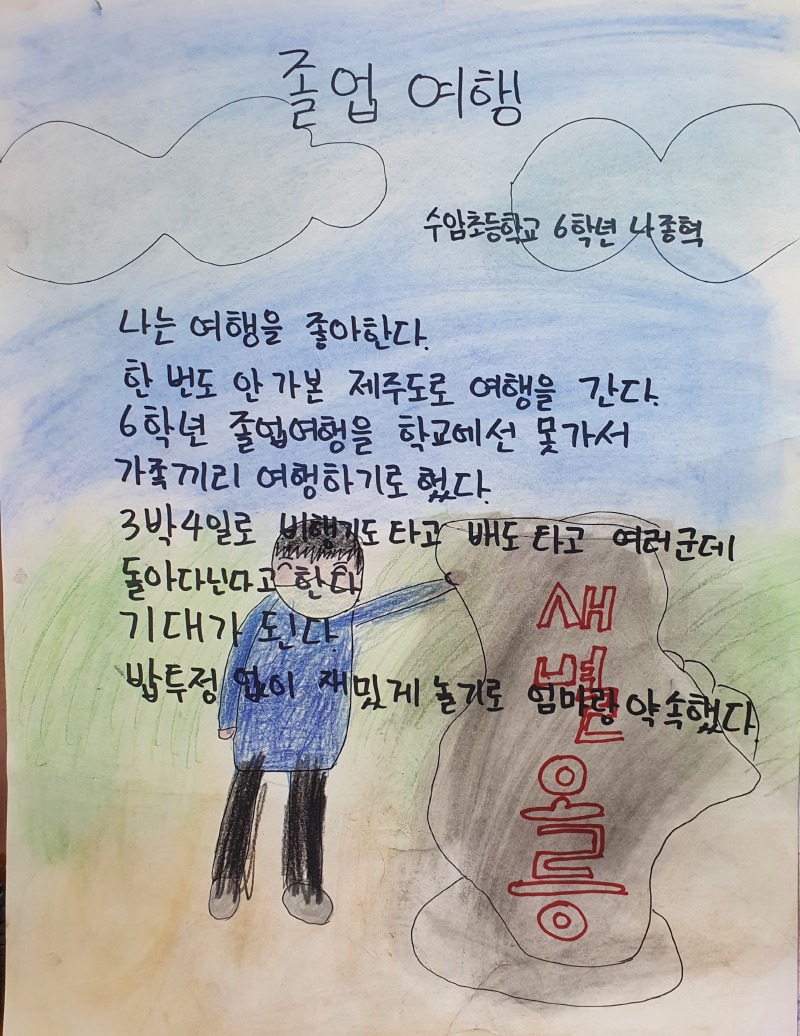 졸업 여행
수암초등학교 6학년 나종혁
나는 여행을 좋아한다.
한 번도 안 가본 제주도로 여행을 간다.
6학년 졸업여행을 학교에선 못가서
가족끼리 여행하기로 했다.
3박4일로 비행기도 타고 배도 타고 여러군데
돌아다닌다고 한다.
기대가 된다.
밥투정 없이 재밌게 놀기로 엄마랑 약속했다.
새
별
오
름